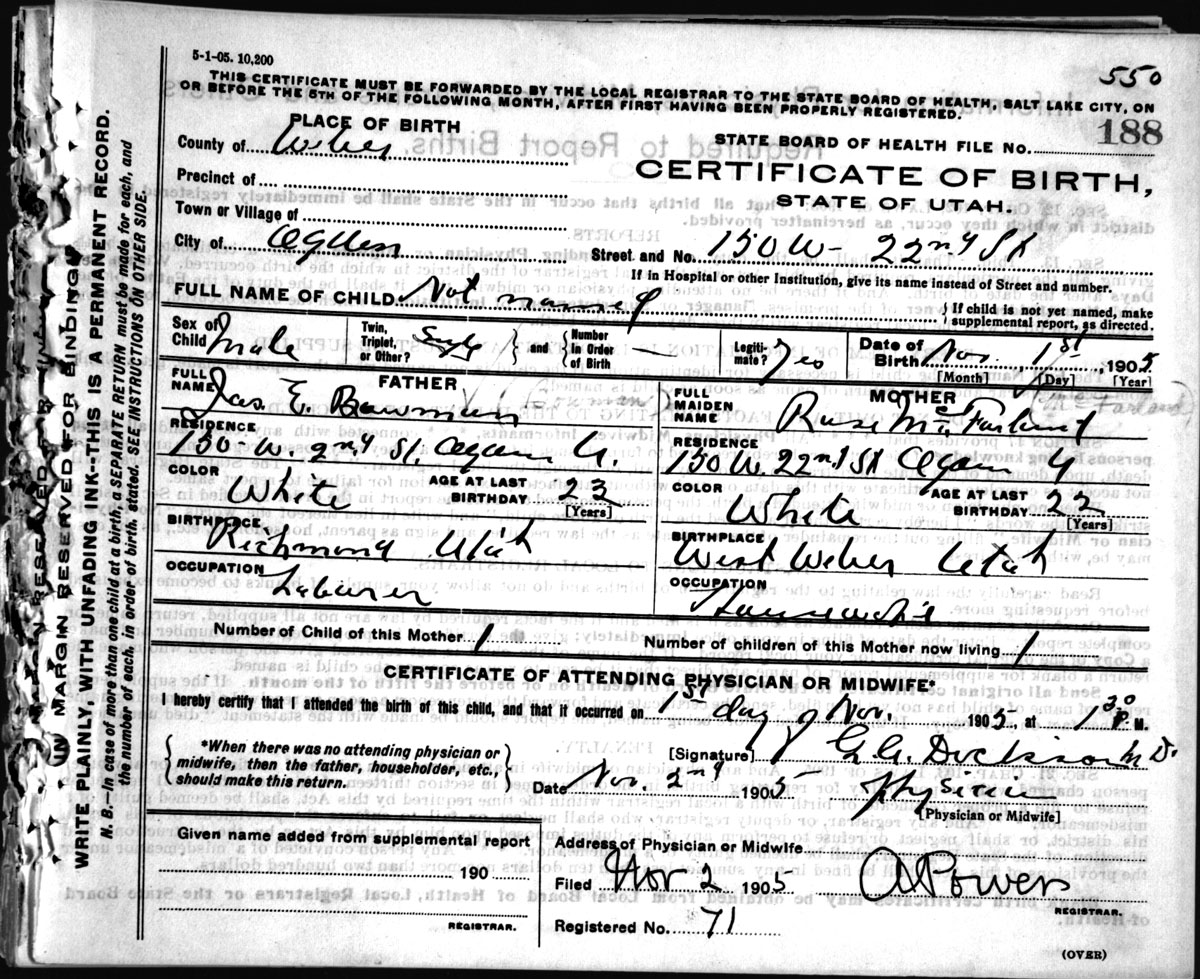 5-1-05. 10,200
550
THIS CERTIFICATE MUST BE FORWARDED BY THE LOCAL REGISTRAR TO THE STATE BOARD OF HEALTH, SALT LAKE CITY, ON
OR BEFORE THE 5TH OF THE FOLLOWING MONTH, AFTER FIRST HAVING BEEN PROPERLY REGISTERED.
PLACE OF BIRTH
STATE BOARD OF HEALTH FILE No. 188
County of Weber
CERTIFICATE OF BIRTH,
Precinct of
STATE OF UTAH.
Town or Village of
City of Ogden Street and No. 150 W- 22nd St
If in Hospital or other Institution, give its name instead of Street and number.
FULL NAME OF CHILD Not named
If child is not yet named, make
supplemental report, as directed.
Sex of Child Male
Twin, Triplet, or Other? Single and Number in Order of Birth —
Legitimate? Yes
Date of Birth Nov. 1st 1905
[Month] [Day] [Year]
FATHER
FULL NAME Jas. E. Bowman
RESIDENCE
150 W. 22nd St. Ogden U.
COLOR White AGE AT LAST BIRTHDAY 23
[Years]
BIRTHPLACE
Richmond Utah
OCCUPATION
Laborer
MOTHER
FULL MAIDEN NAME Rose McFarland
RESIDENCE
150 W. 22nd St Ogden U
COLOR White AGE AT LAST BIRTHDAY 22
[Years]
BIRTHPLACE
West Weber Utah
OCCUPATION
Housewife
Number of Child of this Mother 1 Number of children of this Mother now living 1
CERTIFICATE OF ATTENDING PHYSICIAN OR MIDWIFE*
I hereby certify that I attended the birth of this child, and that it occurred on 1st day of Nov. 1905, at 1 30 P. M.
*When there was no attending physician or
midwife, then the father, householder, etc.,
should make this return.
[Signature] G. A. Dickson M. D.
Date Nov. 2nd 1905 Physician
[Physician or Midwife]
Given name added from supplemental report
190
REGISTRAR.
Address of Physician or Midwife
Filed Nov 2 1905 A Powers
REGISTRAR.
Registered No. 71
(OVER)
MARGIN RESERVED FOR BINDING
IN MARGIN RESERVED FOR BINDING
WRITE PLAINLY, WITH UNFADING INK--THIS IS A PERMANENT RECORD.
N. B.—In case of more than one child at a birth, a SEPARATE RETURN must be made for each, and
the number of each, in order of birth, stated. SEE INSTRUCTIONS ON OTHER SIDE.